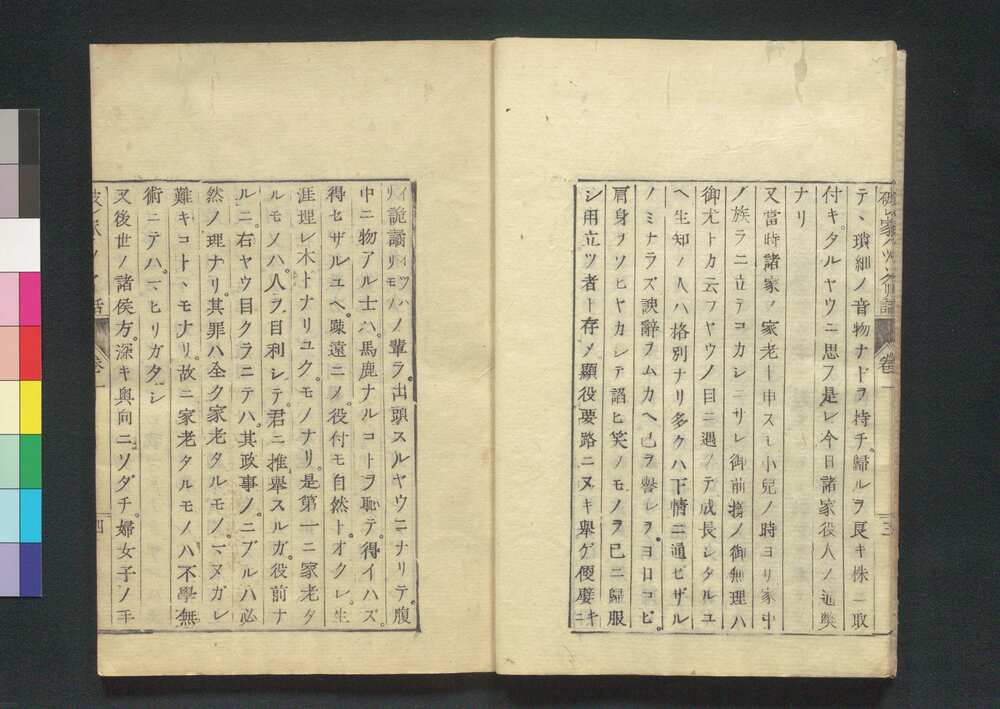 テ、瑣細ノ音物ナドヲ持チ歸ルヲ良キ株ニ取
付キタルヤウニ思フ是レ今日諸家役人ノ通弊
ナリ
又當時諸家ノ家老ト申スモ小兒ノ時ヨリ家中
ノ族ラニ立テコカシニサレ御前擔ノ御無理ハ
御尤トカ云フヤウノ目ニ遇ノテ成長シタルユ
ヘ生知ノ人ハ格別ナリ多クハ下情ニ通ビザル
ノミナラズ諛辭ヲムカヘ己ヲ譽レラ。ヨロコビ。
肩身ヲソヒヤカシテ諂ヒ笑ノモノヲ已ニ歸服
シ用立ツ者ト存メ顯役要路ニヌキ舉ゲ便嬖キ
詭譎ノ輩ラ。出頭スルヤウニナリテ。腹
中ニ物アル士ハ。馬鹿ナルコトヲ恥テ。得イハズ。
得セザルユヘ。疎遠ニメ。役付モ自然ト。オクレ。生
涯理レ木トナリユク。モノナリ。是第一ニ家老タ
ルモノハ。人ヲ目利シテ。君ニ推舉スルガ。役前ナ
ルニ。右ヤウ目クラニテハ。其政事ノ。ニブルハ必
然ノ理ナリ。其罪ハ全ク家老タルモノ。マヌガレ
難キコト、モナリ。故ニ家老タルモノハ不學無
術ニテハ。マヒリガタシ
又後世ノ諸侯方。深キ奧向ニソダチ。婦女子ノ手
卷一
三
卷一
四